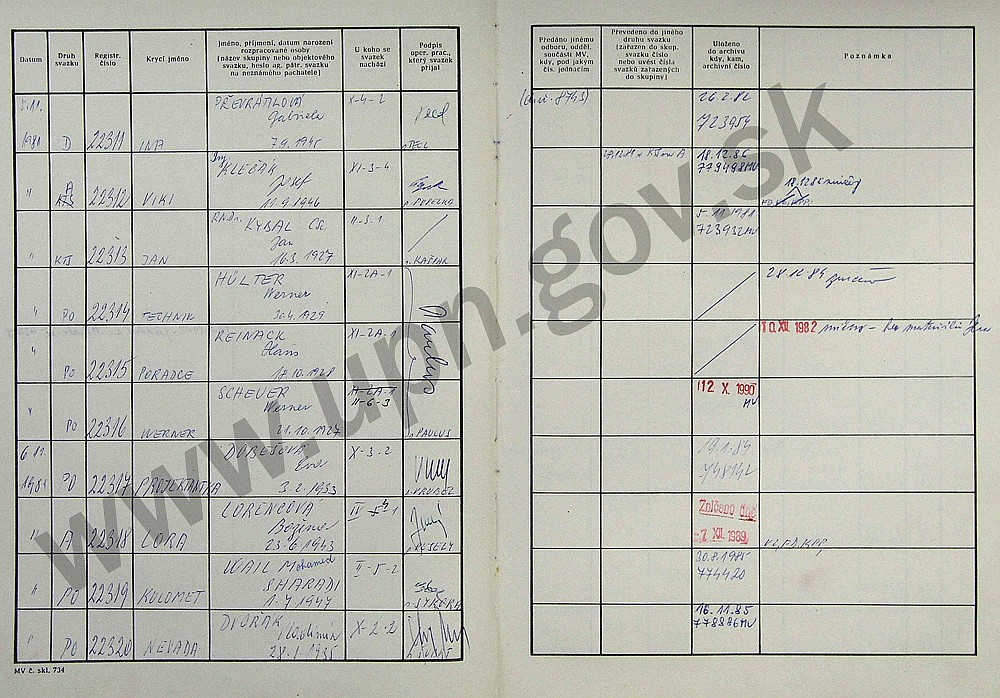 Datum
Druh svazku
Registr. číslo
Krycí jméno
Jméno, příjmení, datum narození
rozpracované osoby
(název skupiny nebo objektového
svazku, heslo ag. pátr. svazku
na neznámého pachatele)
U koho se
svazek
nachází
Podpis
oper. prac.,
který svazek
přijal
Předáno jinému
odboru, odděl.
součásti MV,
kdy, pod jakým
čís. jednacím
Převedeno do jiného
druhu svazku
(zařazen do skup.
svazku číslo
nebo uvést čísla
svazků zařazených
do skupiny)
Uloženo
do archivu
kdy, kam,
archivní číslo
Poznámka
5.11. 1981 D 22311 INA
PŘEVRÁTILOVÁ
Gabriela
7.9.1945
X-4-2
26.2.82
723954
" A KTS 22312 VIKI
Ing. KLEČÁK
Josef
11.9.1946
XI-3-4
POPELKA
18.12.86
779498MV
18.12.86
" KTS 22313 JAN
RNDr. KYBAL CSc.
Jan
16.3.1927
II-3-1
KAŠPAR
5.11.1981
723932MV
" PO 22314 TECHNIK
HÜLTER
Werner
30.4.1929
XI-2A-1
28.12.84
" PO 22315 PORADCE
REINACK
Hans
18.10.1928
XI-2A-1
10. XII. 1982
" PO 22316 WERNER
SCHEUER
Werner
21.10.1927
XI-2A-1
II-6-3
PAULUS
12 X. 1990
MV
6.11. 1981 PO 22317 PROJEKTANTKA
DOBEŠOVÁ
Eva
3.2.1933
X-3-2
VRUBEL
19.1.84
748142
" A 22318 LORA
LORENCOVÁ
Božena
23.6.1943
VESELÝ
Zničeno dne
7. XII. 1989
" PO 22319 KULOMET
WAIL Mohamed
SHARADI
1.7.1947
II-5-2
SÝKORA
30.8.1985
774420
" PO 22320 NEVADA
DVOŘÁK Vladimír
28.1.1935
X-2-2
16.11.85
778886MV
MV č. skl. 734
www.upn.gov.sk